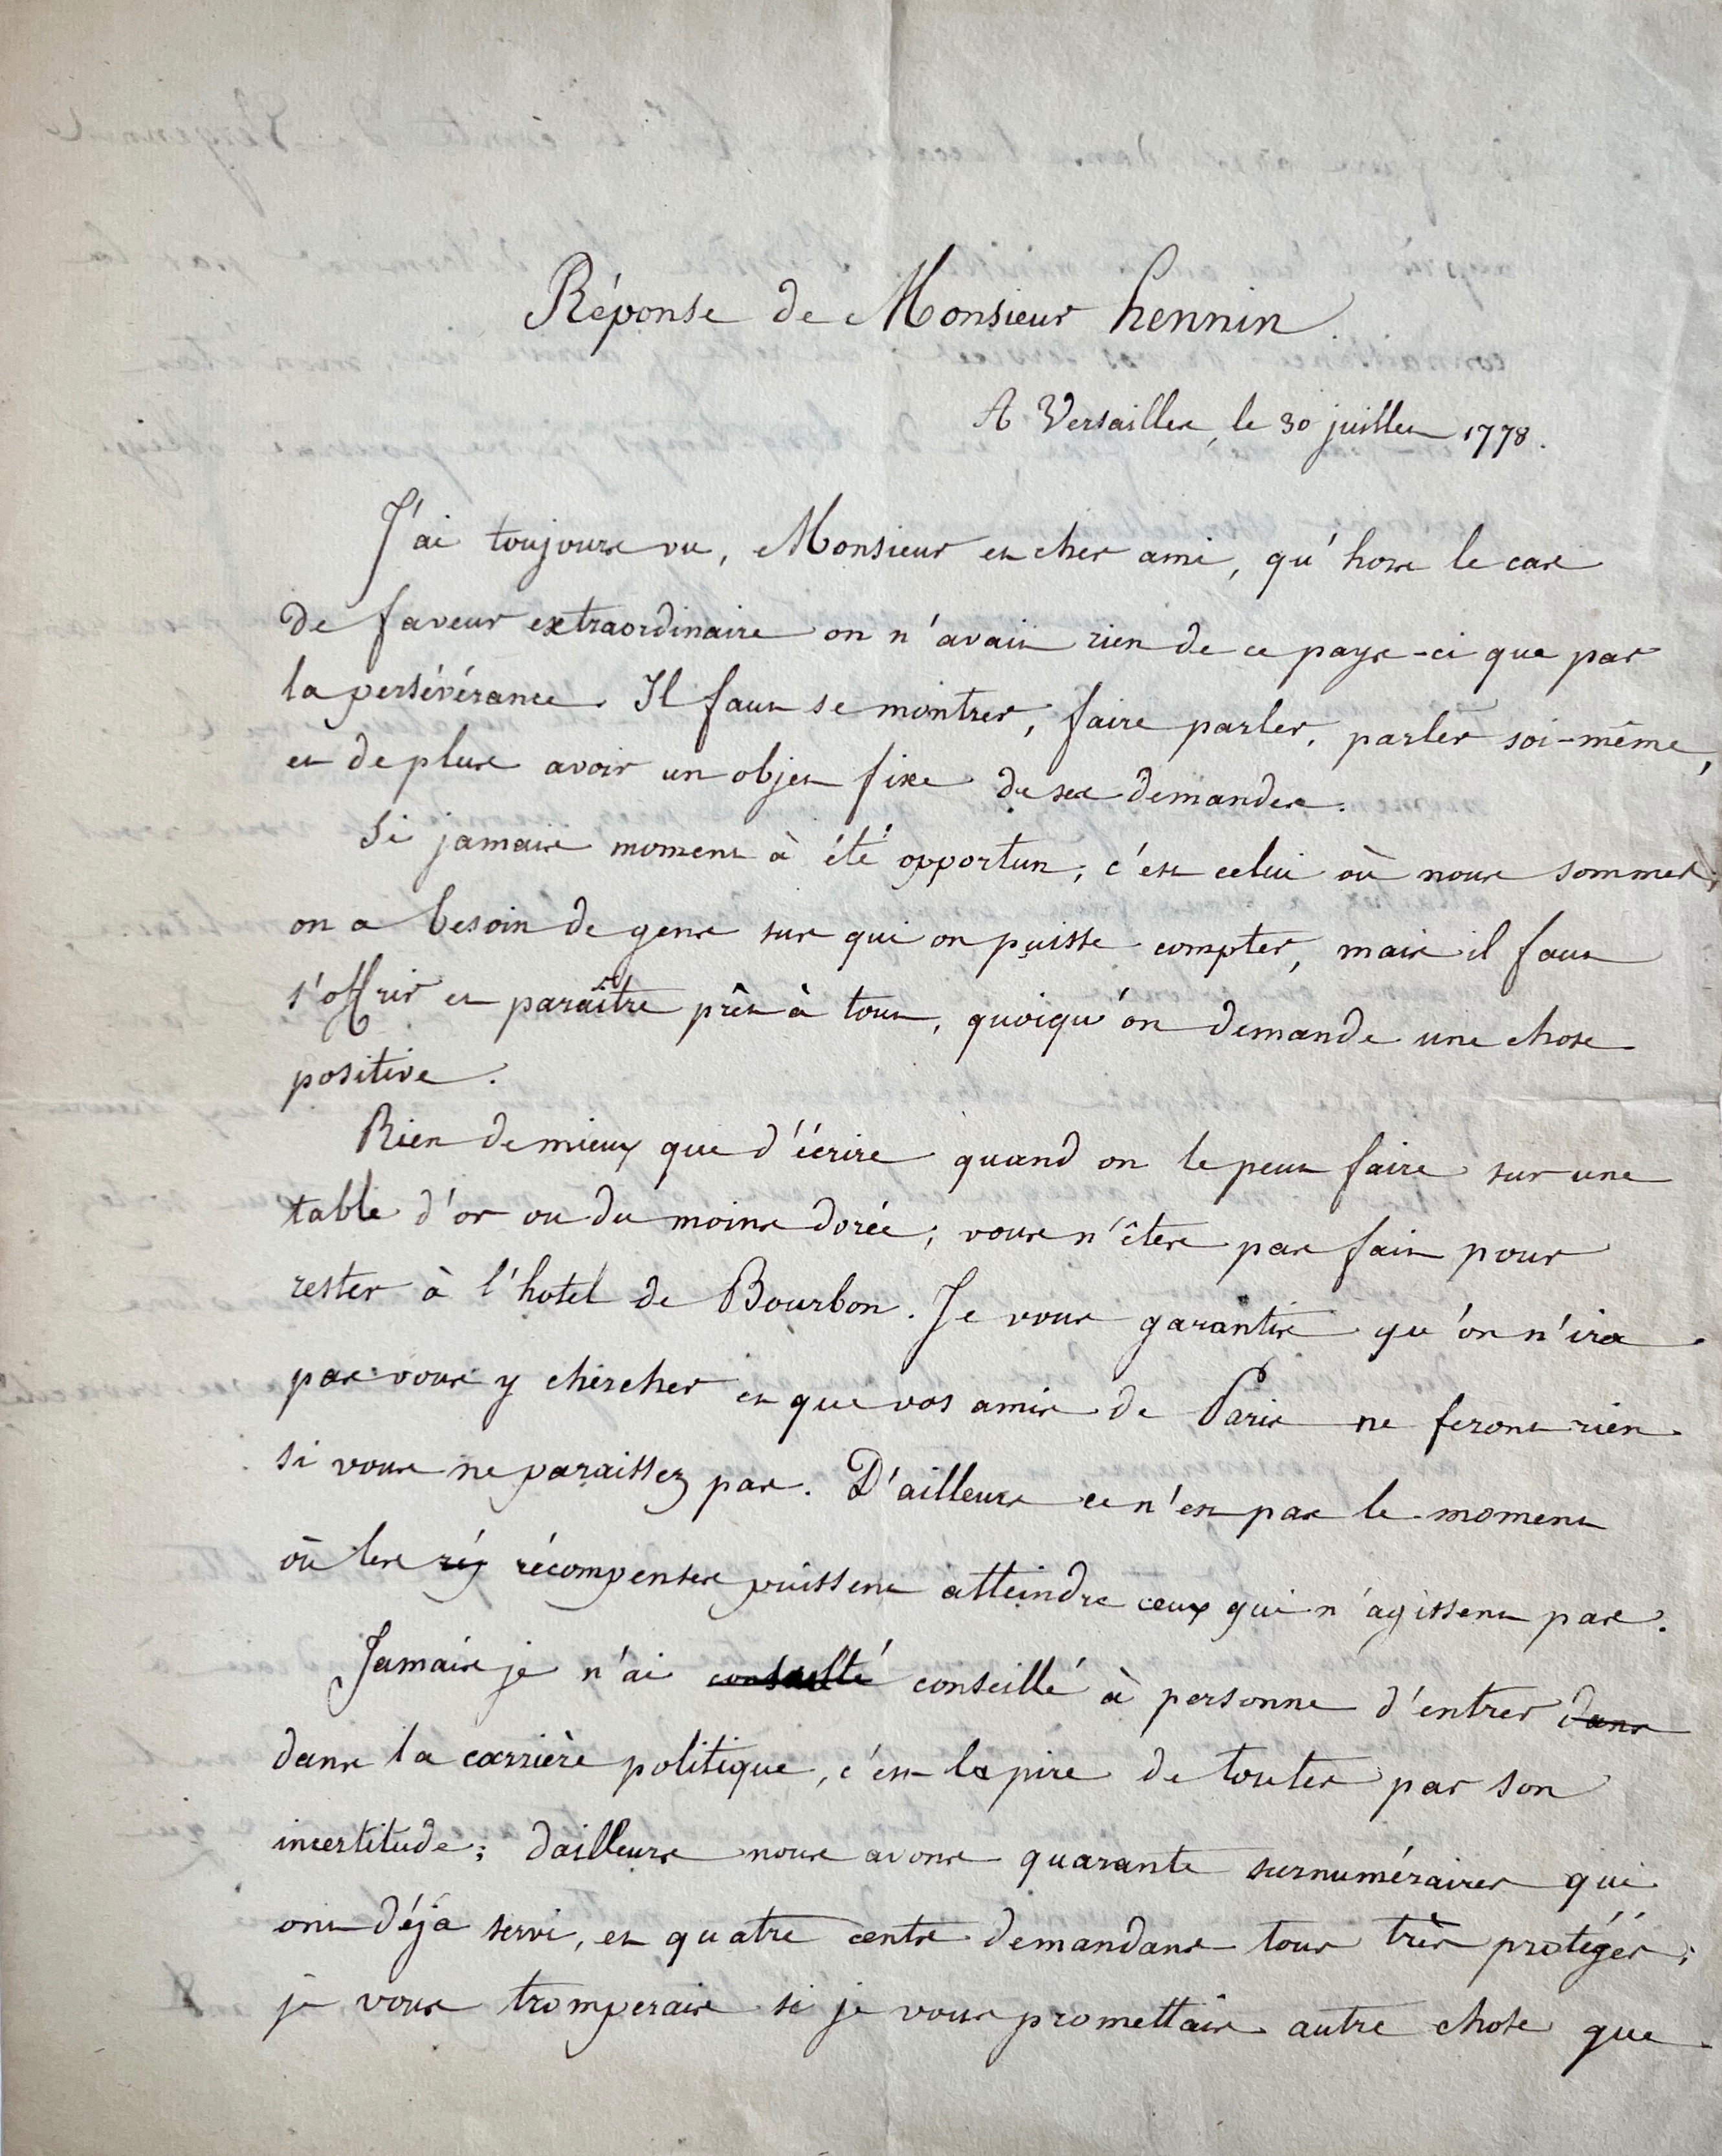 Réponse de Monsieur hennin
A Versailles, le 30 juillet 1778.
J'ai toujours vu, Monsieur et cher ami, qu'hors le cas
de faveur extraordinaire on n'avait rien de ce pays-ci que par
la persévérance. Il faut se montrer, faire parler, parler soi-même,
et de plus avoir un objet fixe de ses demandes.
Si jamais moment à été opportun, c'est celui où nous sommes,
on a besoin de gens sur qui on puisse compter, mais il faut
s'offrir et paraître prêt à tout, quoiqu'on demande une chose
positive.
Rien de mieux que d'écrire quand on le peut faire sur une
table d'or ou du moins dorée; vous n'êtes pas fait pour
rester à l'hotel de Bourbon. Je vous garantis qu'on n'ira
pas vous y chercher et que vos amis de Paris ne feront rien
si vous ne paraissez pas. D'ailleurs ce n'est pas le moment
où les réj récompenses puissent atteindre ceux qui n'agissent pas.
Jamais je n'ai consulté conseillé à personne d'entrer dans
dans la carrière politique, c'est la pire de toutes par son
incertitude; dailleurs nous avons quarante surnuméraires qui
ont déjà servi, et quatre cents demandans tous très protégés;
je vous tromperais si je vous promettais autre chose que